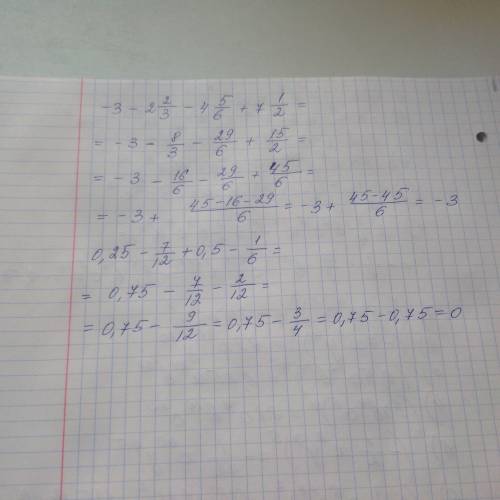 -3 - 2 2/3 - 4 5/6 + 7 1/2 =
= -3 - 8/3 - 29/6 + 15/2 =
= -3 - 16/6 - 29/6 + 45/6 =
= -3 + (45-16-29)/6 = -3 + (45-45)/6 = -3
0,25 - 7/12 + 0,5 - 1/6 =
= 0,75 - 7/12 - 2/12 =
= 0,75 - 9/12 = 0,75 - 3/4 = 0,75 - 0,75 = 0